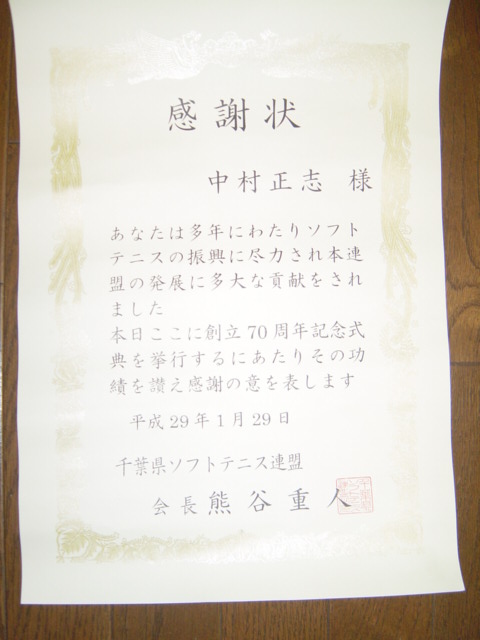 感謝状
中村正志 様
あなたは多年にわたりソフト
テニスの振興に尽力され本連
盟の発展に多大な貢献をされ
ました
本日ここに創立70周年記念式
典を挙行するにあたりその功
績を讃え感謝の意を表します
平成29年1月29日
千葉県ソフトテニス連盟
会長 熊谷重人